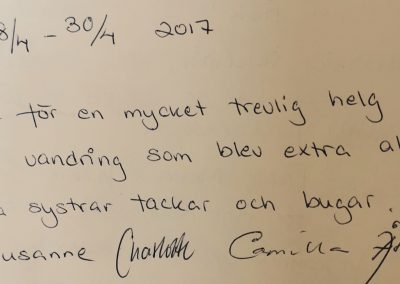 8/4 - 30/4 2017
för en mycket trevlig helg
vandring som blev extra
systrar tackar och bugar.
usanne Charlotte Camilla